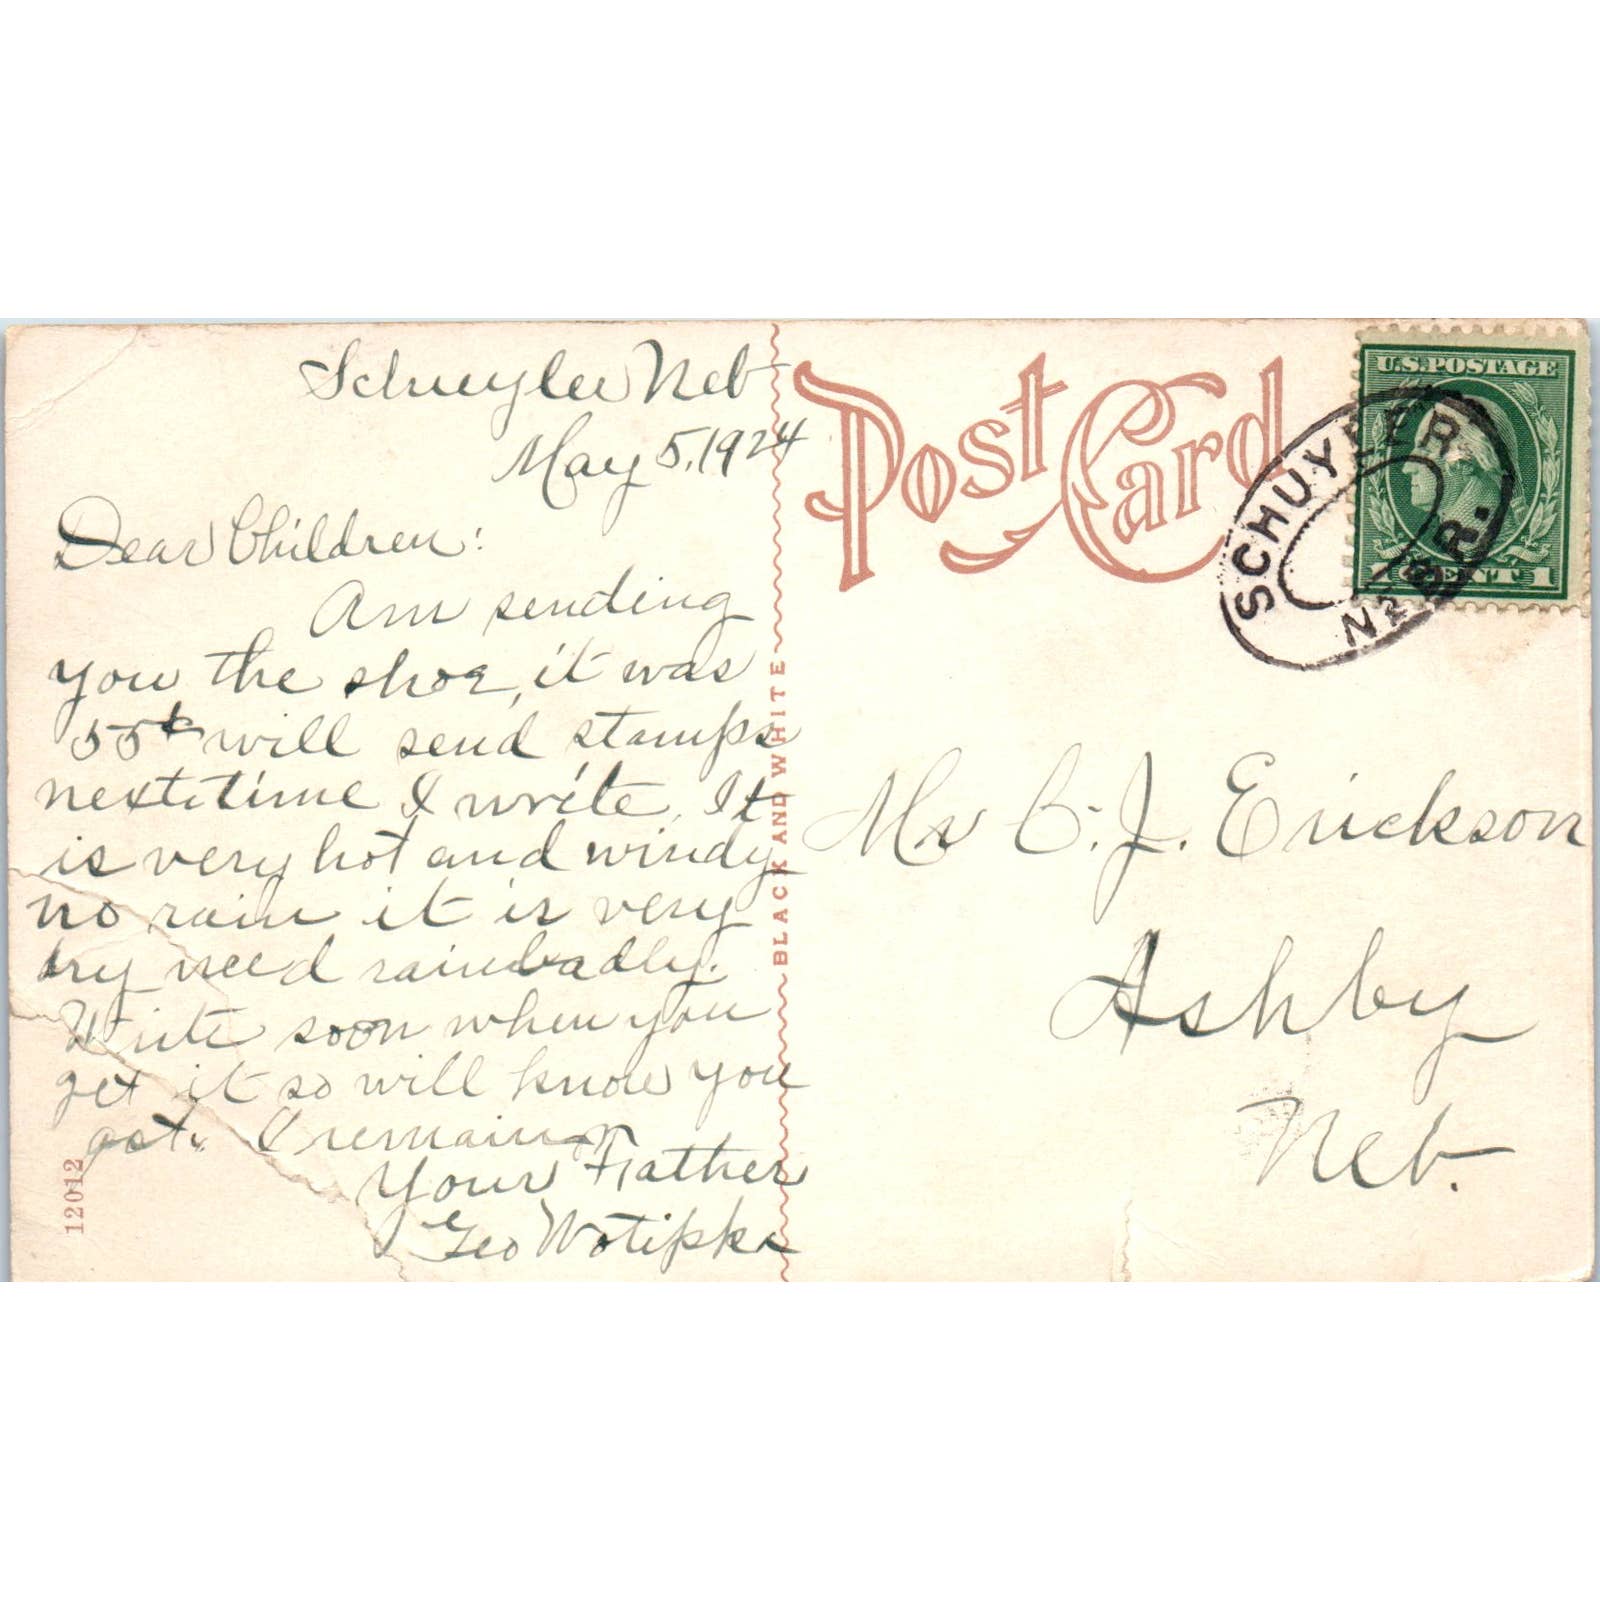 Schuyler Neb
May 5, 1924
Dear Children:
Am sending
you the shoe, it was
55¢ will send stamps
next time I write. It
is very hot and windy
no rain it is very
dry need rain badly.
Write soon when you
get it so will know you
got. I remain
Your Father
Geo Wotipka
12012
BLACK AND WHITE
Post Card
U.S. POSTAGE
1 CENT 1
SCHUYLER
NEBR.
Mr C. J. Erickson
Ashby
Neb.